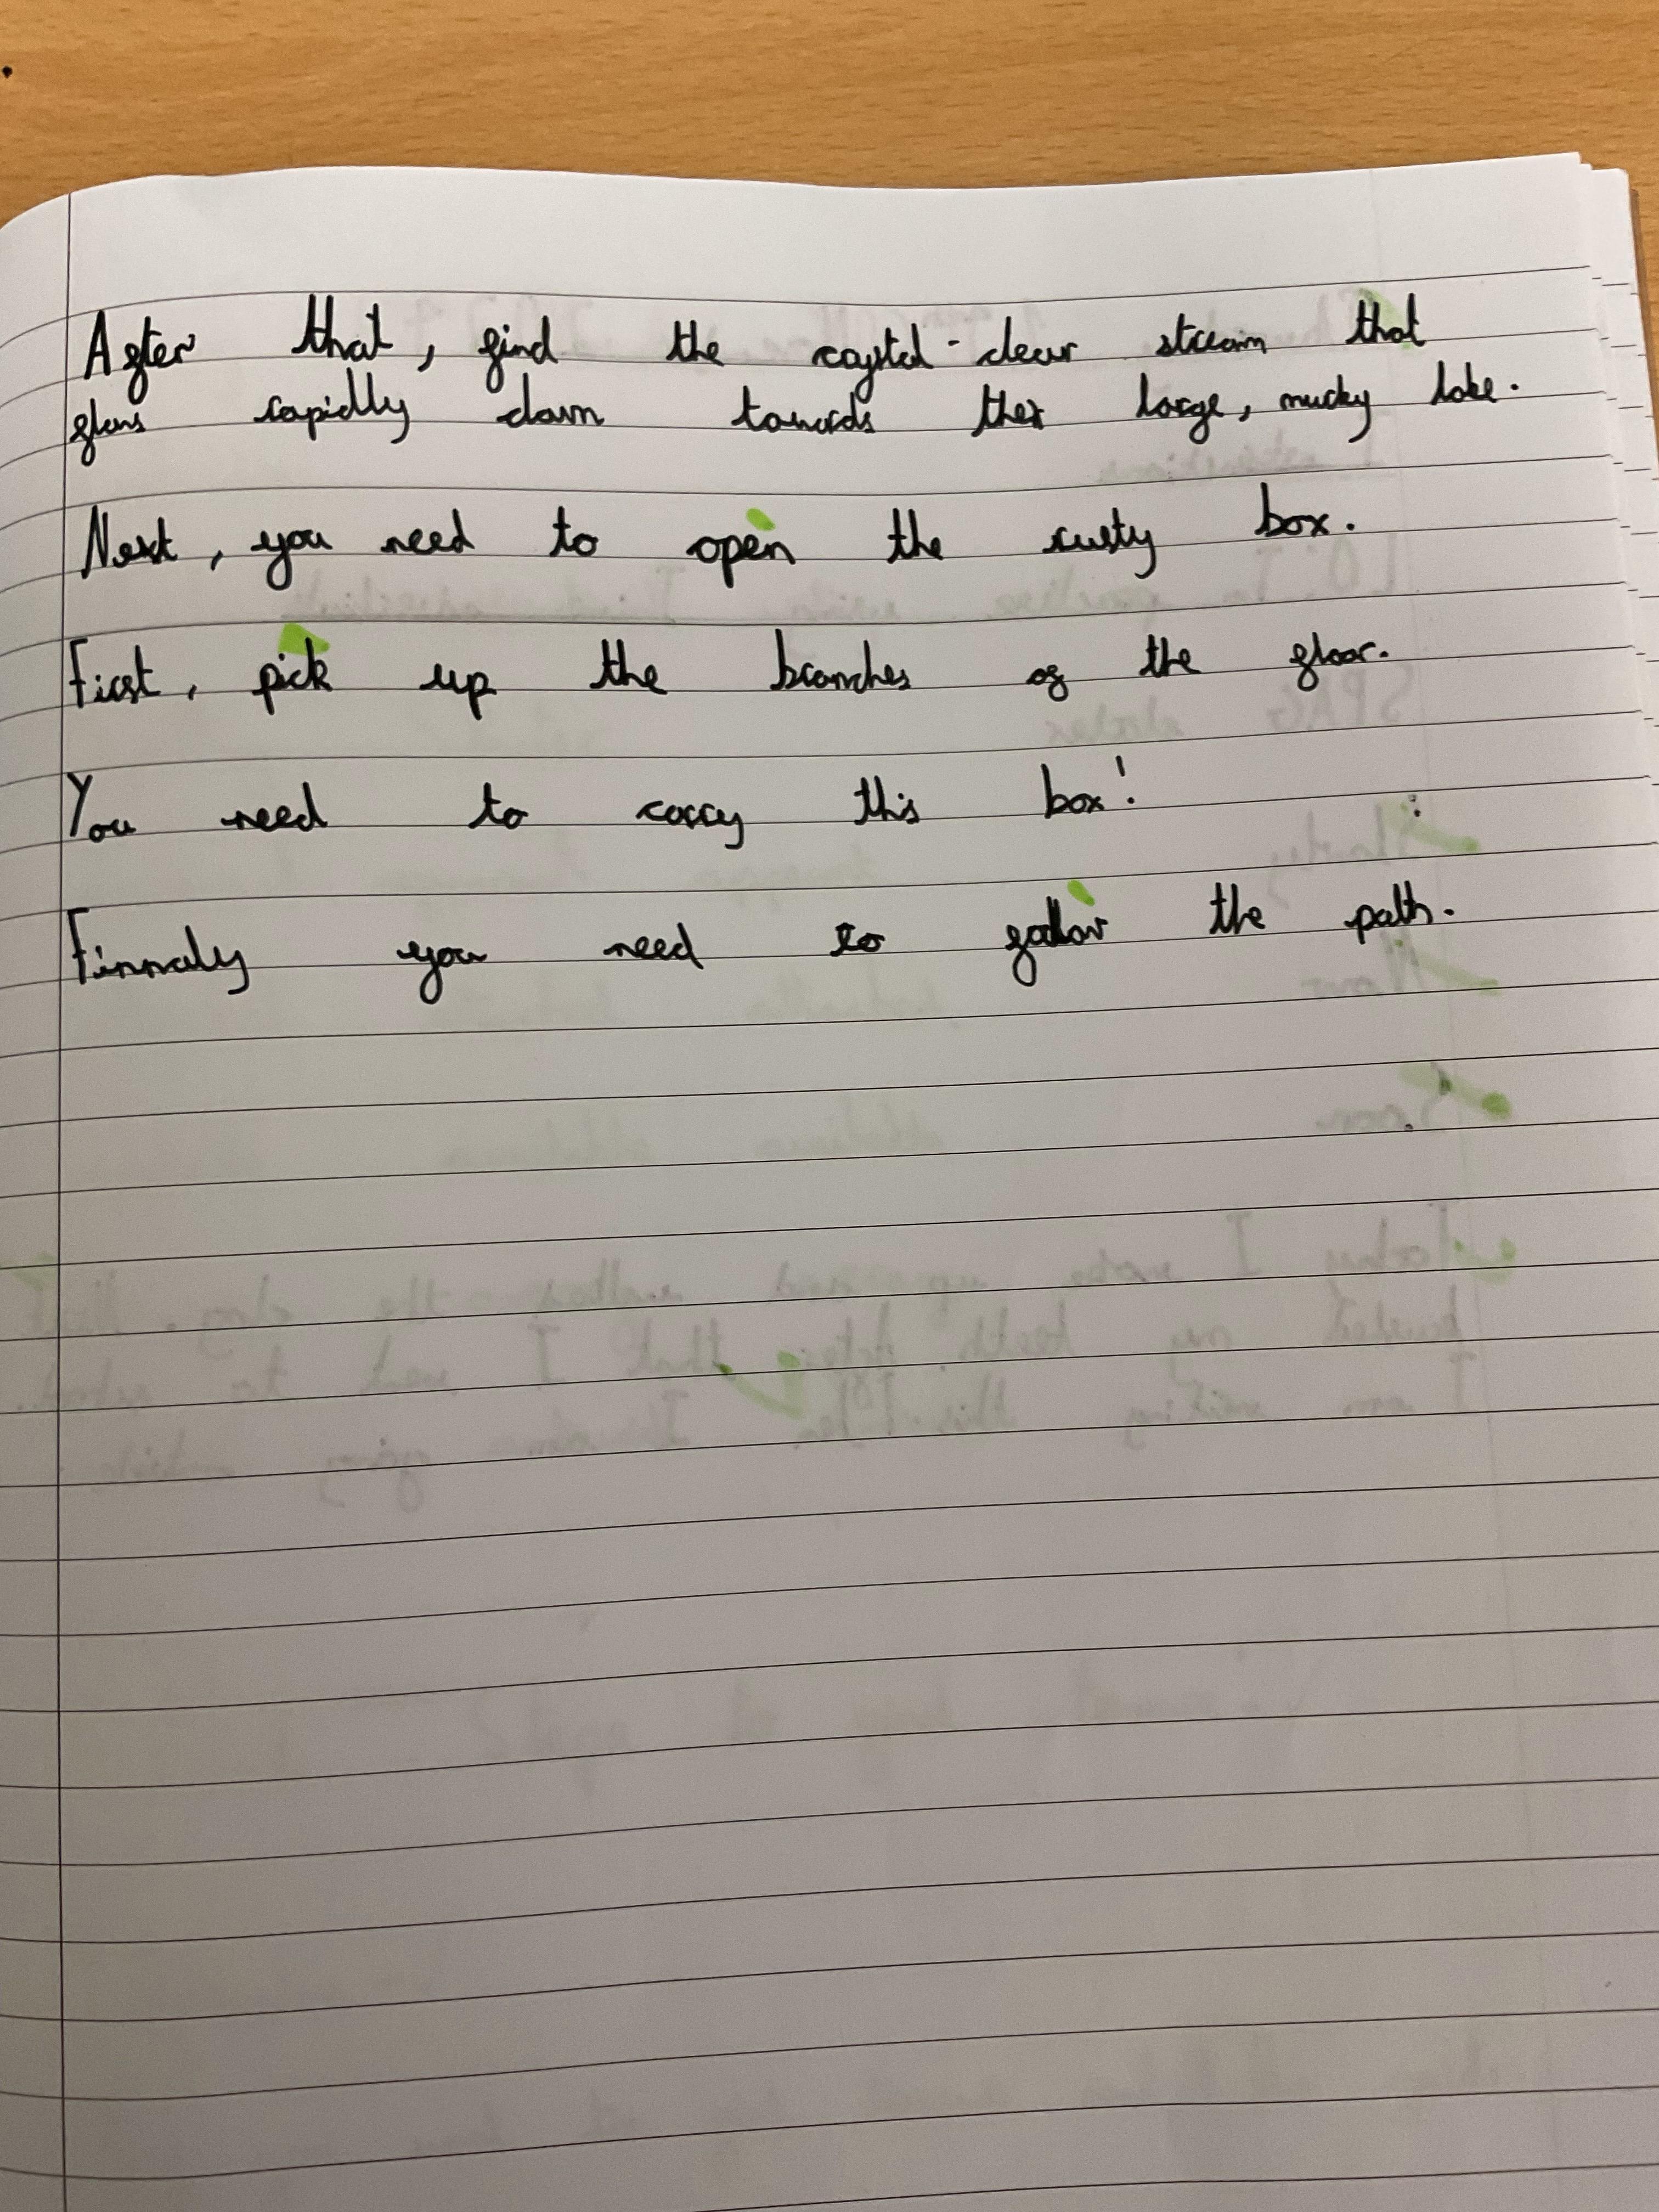 After that, find the crystal-clear stream that
flows rapidly down towards the large, mucky lake.
Next, you need to open the rusty box.
First, pick up the branches of the floor.
You need to carry this box!
Finnaly you need to follow the path.